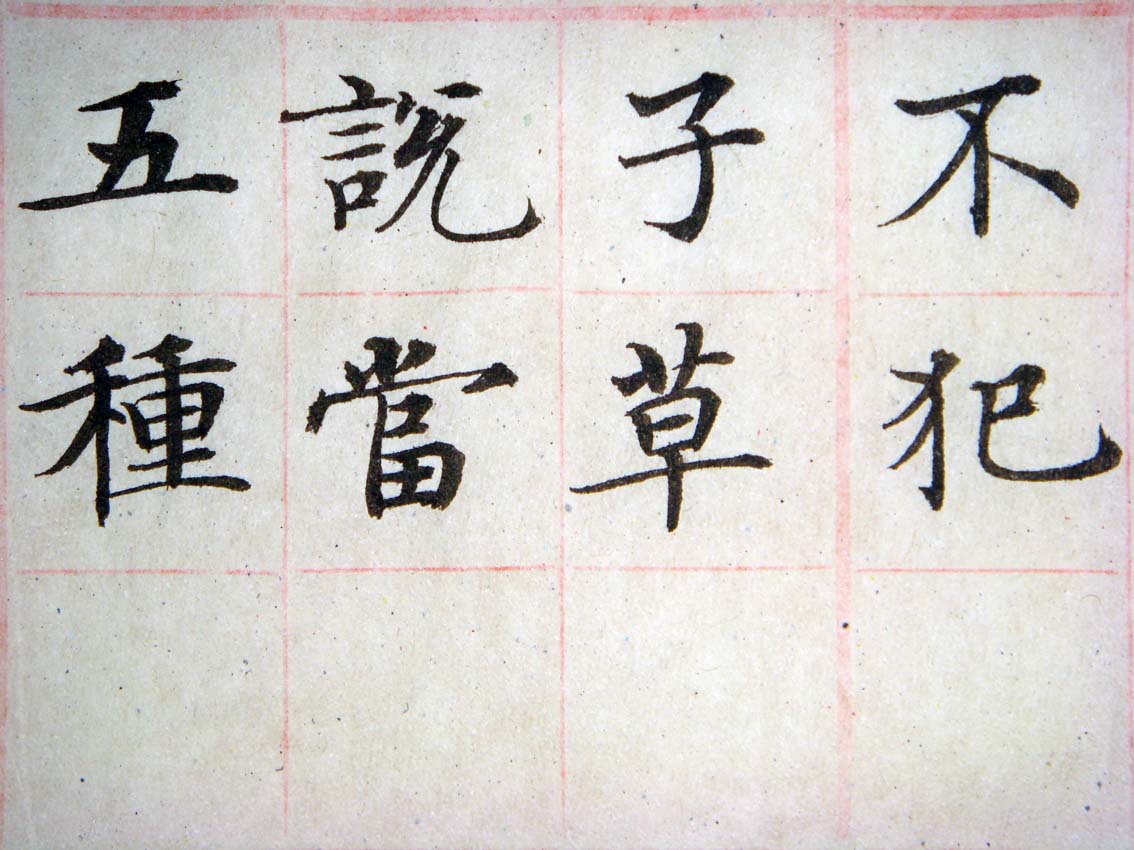 不犯
子草
說當
五種